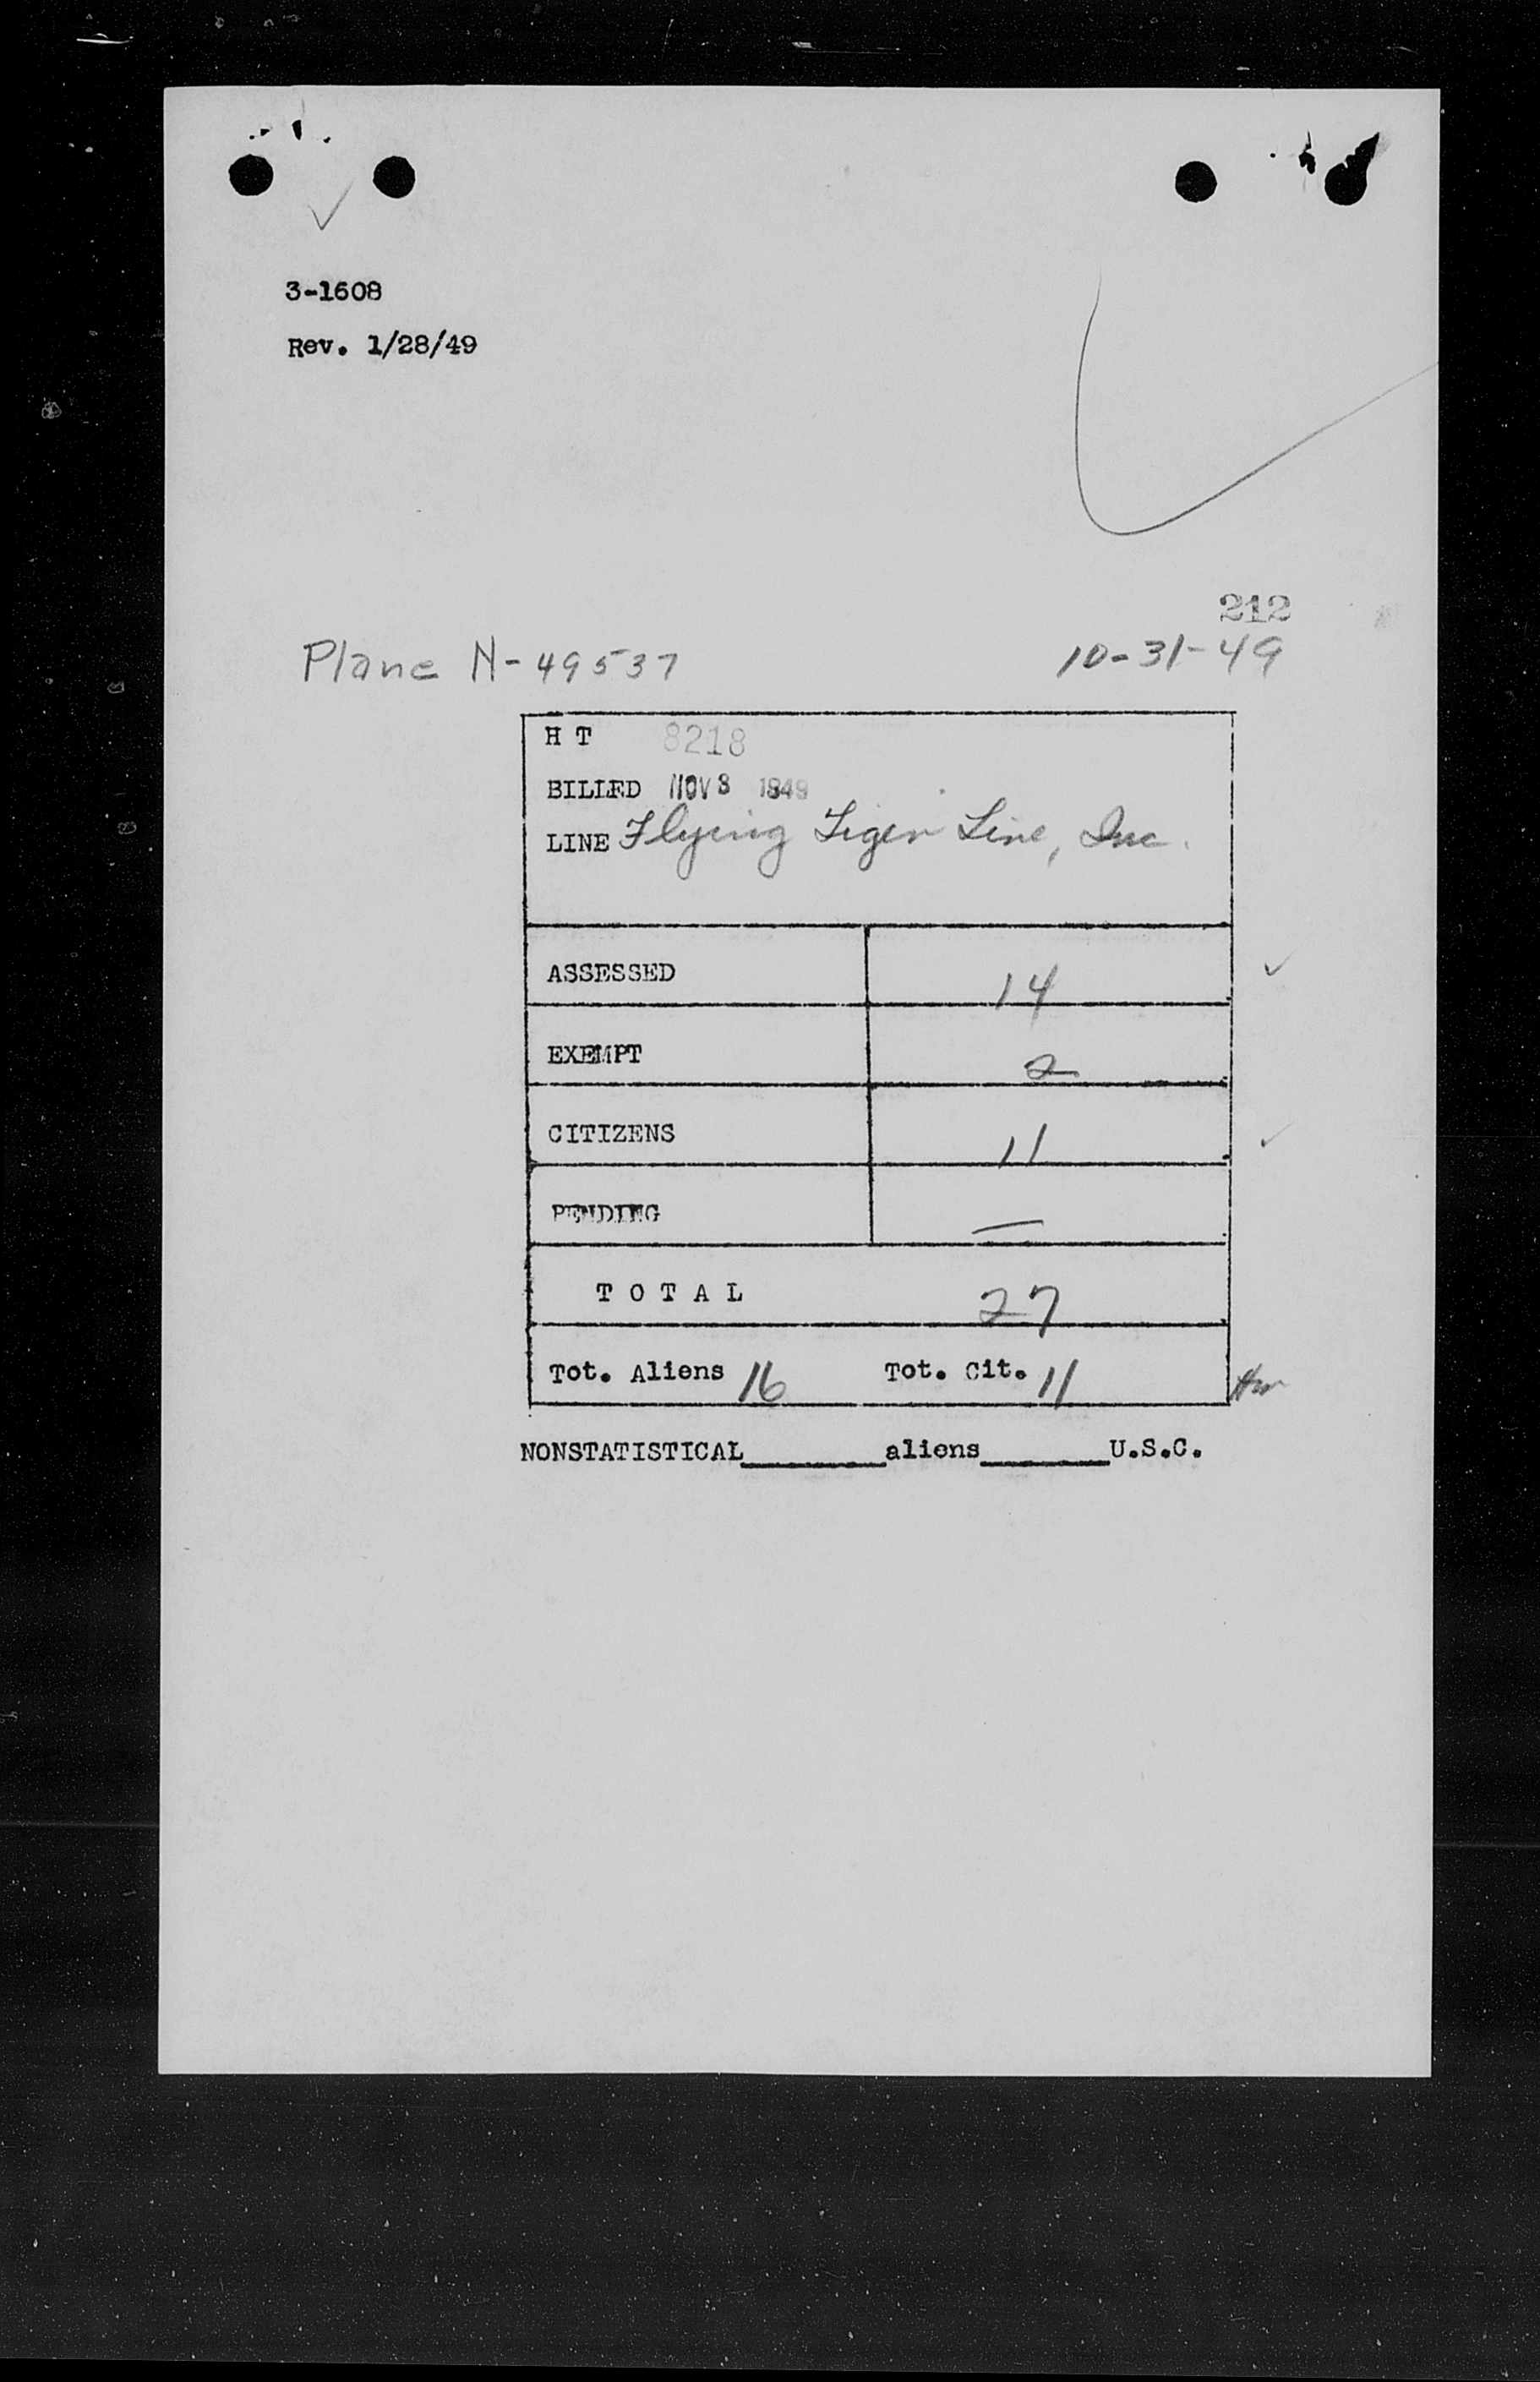 3-1608
Rev. 1/28/49
212
Plane N-49537 10-31-49
H T 8218
BILLED NOV 8 1949
LINE Flying Tiger Line, Inc.
ASSESSED 14
EXEMPT 2
CITIZENS 11
PENDING —
T O T A L 27
Tot. Aliens 16 Tot. Cit. 11
NONSTATISTICAL________aliens_______U.S.C.